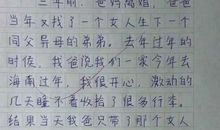 三年前，爸妈离婚，爸爸
当年又找了一个女人生下一个
同父异母的弟弟。去年过年的
时候，我爸说我们一家今年去
海南过年，我很开心，激动的
几天睡不着收拾了很多行李。
结果当天我爸只带了那个女人